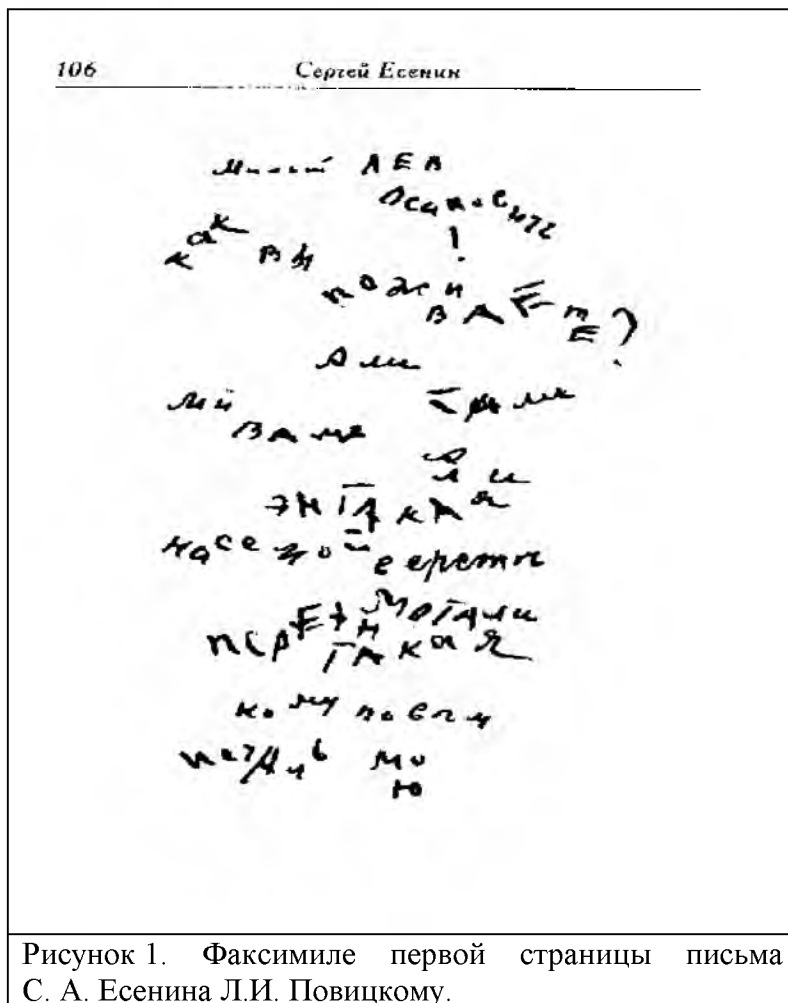 106 Сергей Есенин
Милый ЛЕВ
Осипович
!
как вы
пожи
ВАЕтЕ?
Али
ВАМ
Али
эн ТАкАя
моТАли
ТАкая
кому повем
печАль мо
ю
Рисунок 1. Факсимиле первой страницы письма
С. А. Есенина Л.И. Повицкому.